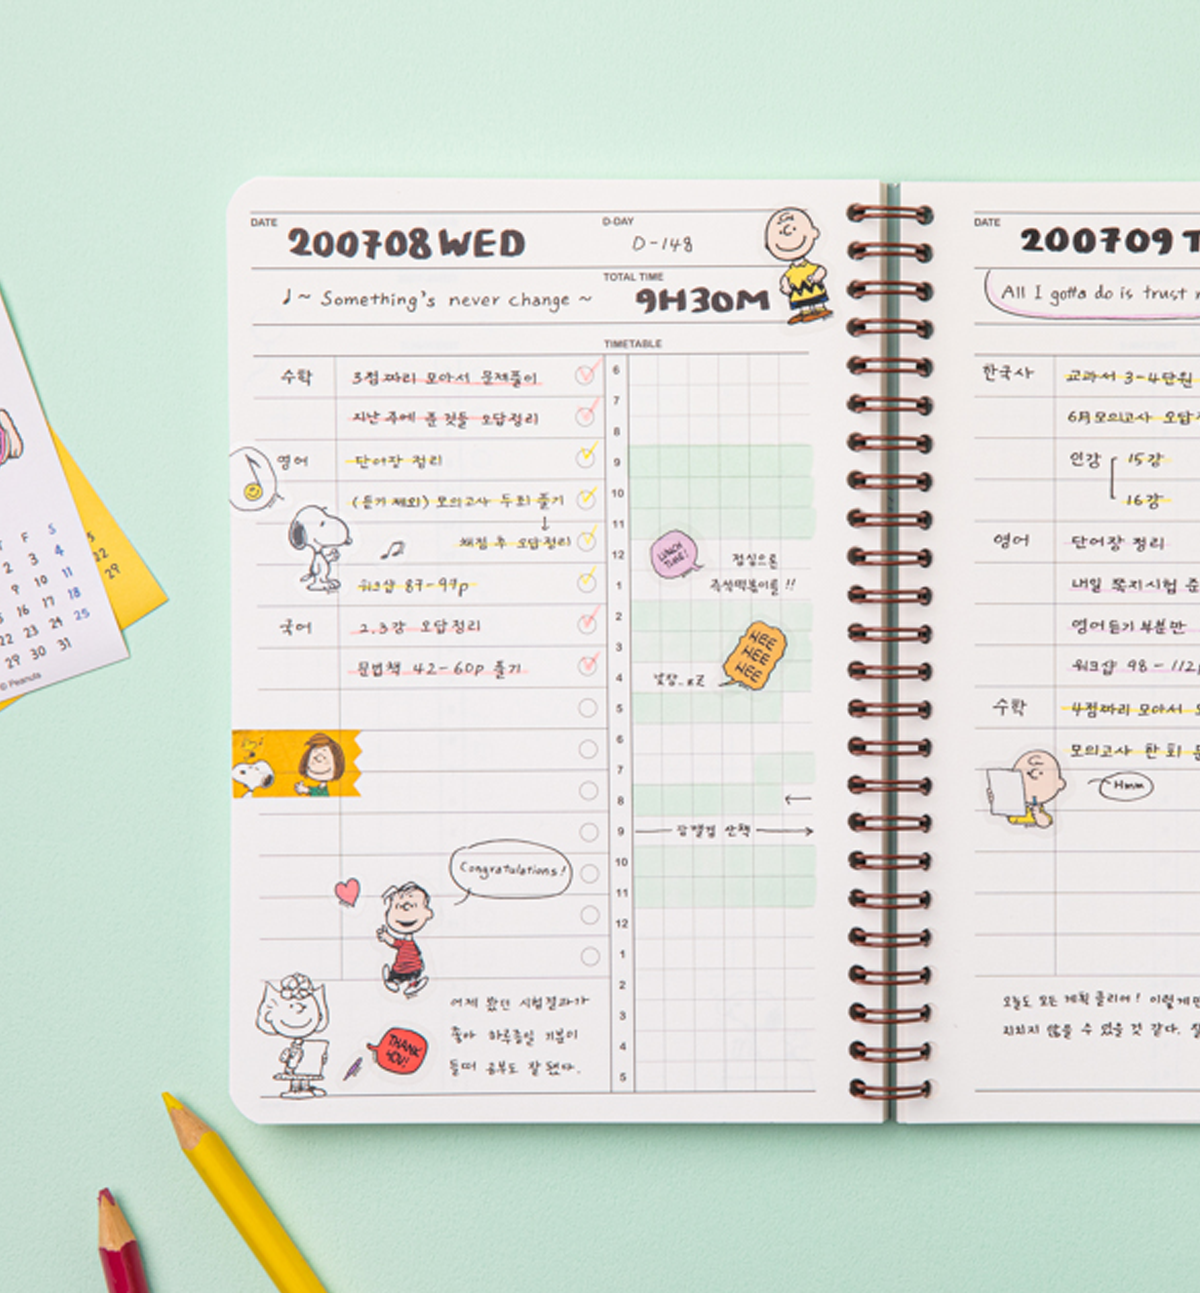 DATE
200708 WED
D-DAY
D-148
♩~ Something's never change ~
TOTAL TIME
9H30M
TIMETABLE
수학
3점 짜리 모아서 문제풀이
지난 주에 푼 것들 오답정리
영어
단어장 정리
(듣기 제외) 모의고사 두 회 풀기
↓
채점 후 오답정리
워크샵 87-97p
국어
2,3강 오답정리
문법책 42-60p 풀기
6
7
8
9
10
11
12
1
2
3
4
5
6
7
8
9
10
11
12
1
2
3
4
5
LUNCH TIME!
점심으론
즉석떡볶이를!!
HEE
HEE
HEE
낮잠..zz
산책
Congratulations!
어제 봤던 시험결과가
좋아 하루종일 기분이
들떠 공부도 잘 됐다.
THANK
YOU!
DATE
200709 T
All I gotta do is trust
한국사
교과서 3-4단원
6月 모의고사 오답
인강
15강
16강
영어
단어장 정리
내일 쪽지시험 준
영어듣기 부분만
워크샵 98-112p
수학
4점짜리 모아서
모의고사 한 회
Hmm
오늘도 모든 계획 클리어! 이렇게만
지치지 않을 수 있을 것 같다.
F
S
2
3
4
9
10
11
16
17
18
22
23
24
25
29
30
31
22
29
© Peanuts